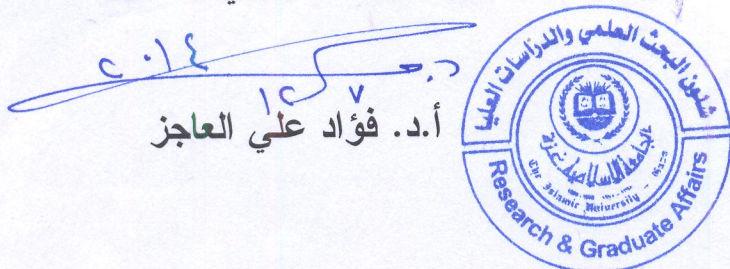 ٢٠١٤
١٢ ٧
أ.د. فؤاد علي العاجز
شئون البحث العلمي والدراسات العليا
الجامعة الإسلامية غزة
The Islamic University - Gaza
Research & Graduate Affairs